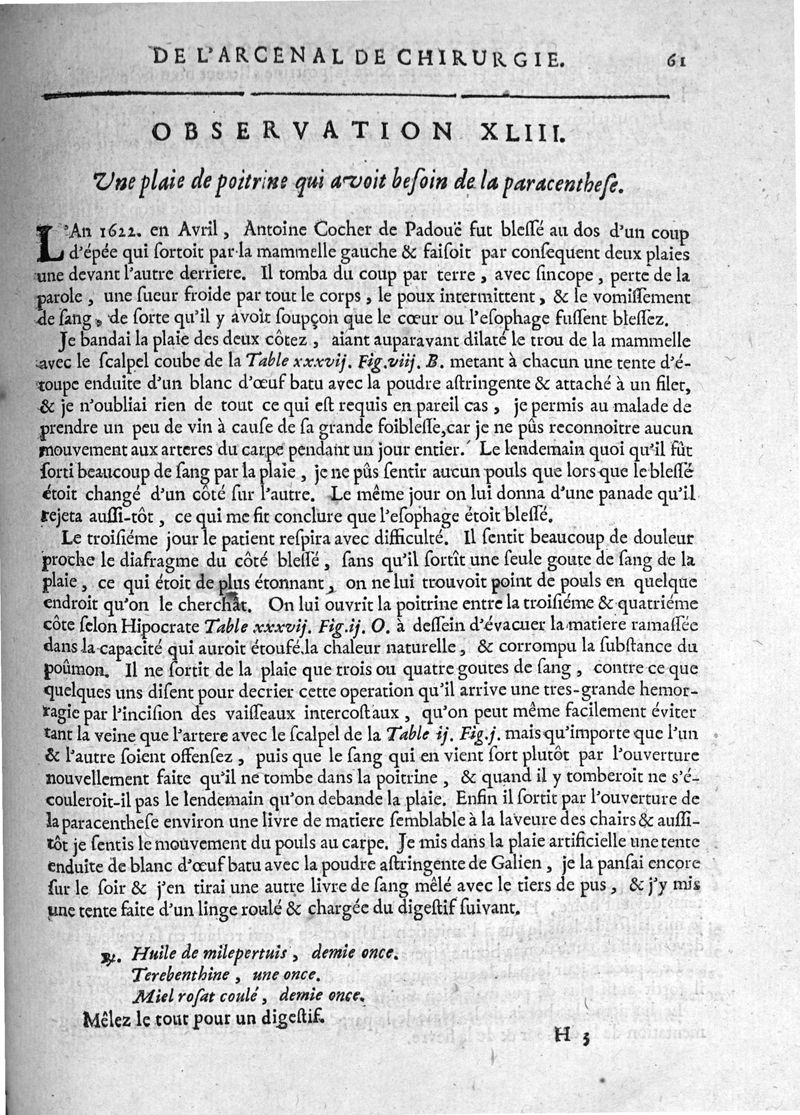 DE L'ARCENAL DE CHIRURGIE. 61
OBSERVATION XLIII.
Une plaie de poitrine qui avoit beſoin de la paracentheſe.
L'An 1622. en Avril, Antoine Cocher de Padouë fut bleſſé au dos d'un coup
d'épée qui ſortoit par la mammelle gauche & faiſoit par conſequent deux plaies
une devant l'autre derriere. Il tomba du coup par terre, avec ſincope, perte de la
parole, une ſueur froide par tout le corps, le poux intermittent, & le vomiſſement
de ſang, de ſorte qu'il y avoit ſoupçon que le cœur ou l'eſophage fuſſent bleſſez.
Je bandai la plaie des deux côtez, aiant auparavant dilaté le trou de la mammelle
avec le ſcalpel coube de la Table xxxvij. Fig. viij. B. metant à chacun une tente d'é-
toupe enduite d'un blanc d'œuf batu avec la poudre aſtringente & attaché à un filet,
& je n'oubliai rien de tout ce qui eſt requis en pareil cas, je permis au malade de
prendre un peu de vin à cauſe de ſa grande foibleſſe, car je ne pûs reconnoitre aucun
mouvement aux arteres du carpe pendant un jour entier. Le lendemain quoi qu'il fût
ſorti beaucoup de ſang par la plaie, je ne pûs ſentir aucun pouls que lors que le bleſſé
étoit changé d'un côté ſur l'autre. Le même jour on lui donna d'une panade qu'il
rejeta auſſi-tôt, ce qui me fit conclure que l'eſophage étoit bleſſé.
Le troiſiéme jour le patient reſpira avec difficulté. Il ſentit beaucoup de douleur
proche le diafragme du côté bleſſé, ſans qu'il ſortît une ſeule goute de ſang de la
plaie, ce qui étoit de plus étonnant, on ne lui trouvoit point de pouls en quelque
endroit qu'on le cherchât. On lui ouvrit la poitrine entre la troiſiéme & quatriéme
côte ſelon Hipocrate Table xxxvij. Fig. ij. O. à deſſein d'évacuer la matiere ramaſſée
dans la capacité qui auroit étoufé la chaleur naturelle, & corrompu la ſubſtance du
poûmon. Il ne ſortit de la plaie que trois ou quatre goutes de ſang, contre ce que
quelques uns diſent pour decrier cette operation qu'il arrive une tres-grande hemor-
ragie par l'inciſion des vaiſſeaux intercoſtaux, qu'on peut même facilement éviter
tant la veine que l'artere avec le ſcalpel de la Table ij. Fig. j. mais qu'importe que l'un
& l'autre ſoient offenſez, puis que le ſang qui en vient ſort plutôt par l'ouverture
nouvellement faite qu'il ne tombe dans la poitrine, & quand il y tomberoit ne s'é-
couleroit-il pas le lendemain qu'on debande la plaie. Enfin il ſortit par l'ouverture de
la paracentheſe environ une livre de matiere ſemblable à la laveure des chairs & auſſi-
tôt je ſentis le mouvement du pouls au carpe. Je mis dans la plaie artificielle une tente
enduite de blanc d'œuf batu avec la poudre aſtringente de Galien, je la panſai encore
ſur le ſoir & j'en tirai une autre livre de ſang mêlé avec le tiers de pus, & j'y mis
une tente faite d'un linge roulé & chargée du digeſtif ſuivant.
℞. Huile de milepertuis, demie once.
Terebenthine, une once.
Miel roſat coulé, demie once.
Mêlez le tout pour un digeſtif.
H 3